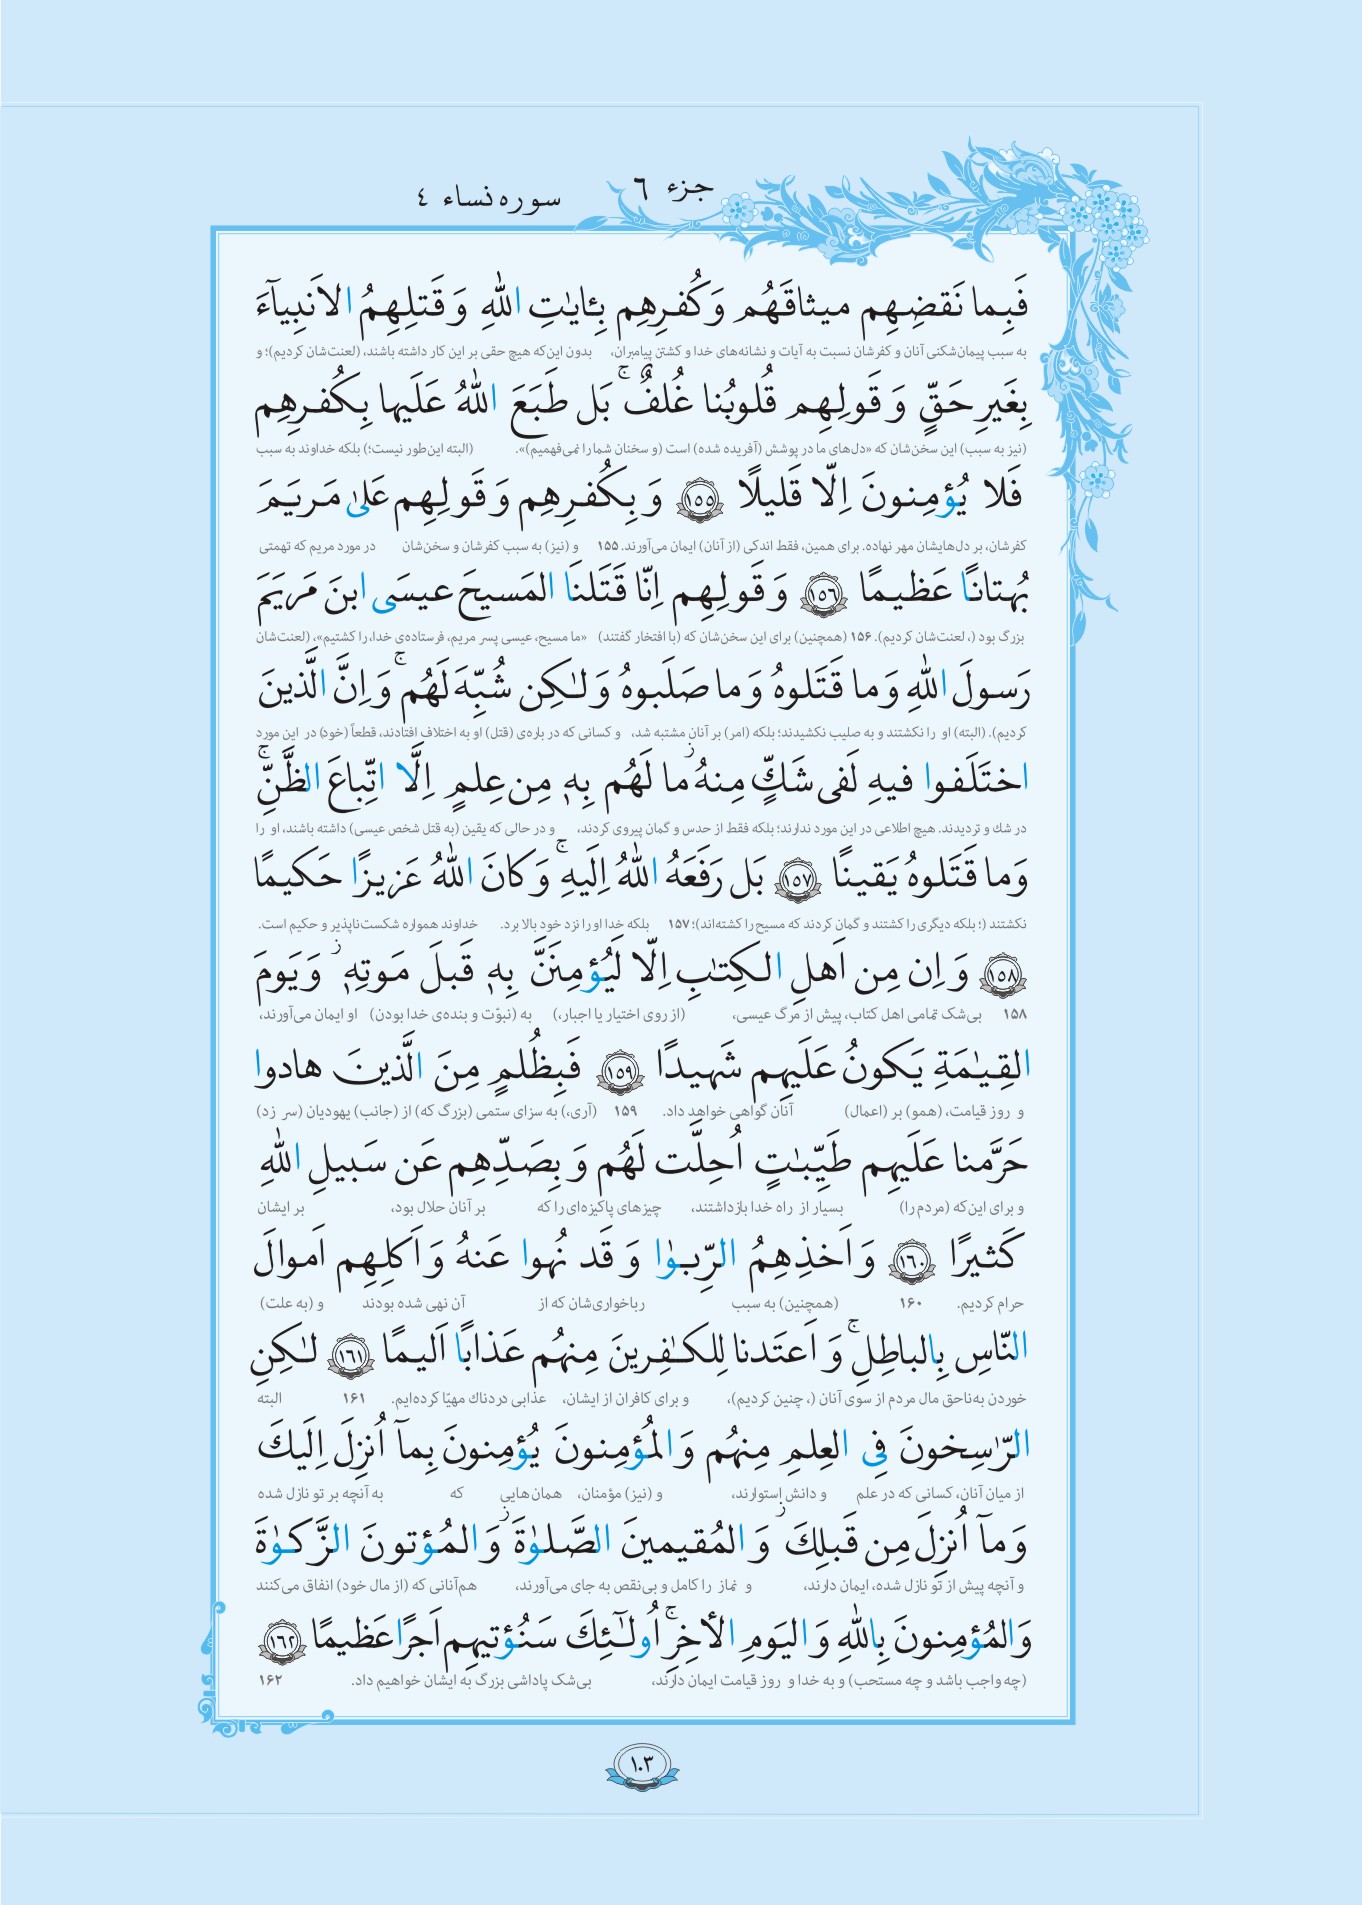 جزء ٦
سوره نساء ٤
فَبِما نَقضِهِم ميثاقَهُم وَكُفرِهِم بِـٔايٰتِ اللّٰهِ وَ قَتلِهِمُ الاَنبِيآءَ
به سبب پیمان‌شکنی آنان و کفرشان نسبت به آیات و نشانه‌های خدا و کشتن پیامبران، بدون این‌که هیچ حقی بر این کار داشته باشند، (لعنت‌شان کردیم)؛ و
بِغَيرِ حَقٍّ وَ قَولِهِم قُلوبُنا غُلفٌ ۚ بَل طَبَعَ اللّٰهُ عَلَيها بِكُفرِهِم
(نیز به سبب) این سخن‌شان که «دل‌های ما در پوشش (آفریده شده) است (و سخنان شما را نمی‌فهمیم)». (البته این‌طور نیست؛) بلکه خداوند به سبب
فَلا يُؤمِنونَ اِلّا قَليلًا ١٥٥ وَ بِكُفرِهِم وَ قَولِهِم عَلىٰ مَريَمَ
کفرشان، بر دل‌هایشان مهر نهاده. برای همین، فقط اندکی (از آنان) ایمان می‌آورند. ۱۵۵ و (نیز) به سبب کفرشان و سخن‌شان در مورد مریم که تهمتی
بُهتانًا عَظيمًا ١٥٦ وَ قَولِهِم اِنّا قَتَلنَا المَسيحَ عيسَى ابنَ مَريَمَ
بزرگ بود (، لعنت‌شان کردیم). ۱۵۶ (همچنین) برای این سخن‌شان که (با افتخار گفتند) «ما مسیح، عیسی پسر مریم، فرستاده‌ی خدا، را کشتیم»، (لعنت‌شان
رَسولَ اللّٰهِ وَما قَتَلوهُ وَما صَلَبوهُ وَلٰـكِن شُبِّهَ لَهُم ۚ وَاِنَّ الَّذينَ
کردیم). (البته) او را نکشتند و به صلیب نکشیدند؛ بلکه (امر) بر آنان مشتبه شد، و کسانی که در باره‌ی (قتل) او به اختلاف افتادند، قطعاً (خود) در این مورد
اختَلَفوا فيهِ لَفى شَكٍّ مِنهُ ۚ ما لَهُم بِهٖ مِن عِلمٍ اِلَّا اتِّباعَ الظَّنِّ ۚ
در شك و تردیدند. هیچ اطلاعی در این مورد ندارند؛ بلکه فقط از حدس و گمان پیروی کردند، و در حالی که یقین (به قتل شخص عیسی) داشته باشند، او را
وَما قَتَلوهُ يَقينًا ١٥٧ بَل رَفَعَهُ اللّٰهُ اِلَيهِ ۚ وَكانَ اللّٰهُ عَزيزًا حَكيمًا
نکشتند (؛ بلکه دیگری را کشتند و گمان کردند که مسیح را کشته‌اند)؛ ۱۵۷ بلکه خدا او را نزد خود بالا برد. خداوند همواره شکست‌ناپذیر و حکیم است.
١٥٨ وَ اِن مِن اَهلِ الـكِتٰبِ اِلّا لَيُؤمِنَنَّ بِهٖ قَبلَ مَوتِهٖ ز وَيَومَ
۱۵۸ بی‌شک تمامی اهل کتاب، پیش از مرگ عیسی، (از روی اختیار یا اجبار،) به (نبوّت و بنده‌ی خدا بودن) او ایمان می‌آورند،
القِيٰمَةِ يَكونُ عَلَيهِم شَهيدًا ١٥٩ فَبِظُلمٍ مِنَ الَّذينَ هادوا
و روز قیامت، (همو) بر (اعمال) آنان گواهی خواهد داد. ۱۵۹ (آری،) به سزای ستمی (بزرگ که) از (جانب) یهودیان (سر زد)
حَرَّمنا عَلَيهِم طَيِّبٰتٍ اُحِلَّت لَهُم وَ بِصَدِّهِم عَن سَبيلِ اللّٰهِ
و برای این‌که (مردم را) بسیار از راه خدا بازداشتند، چیزهای پاکیزه‌ای را که بر آنان حلال بود، بر ایشان
كَثيرًا ١٦٠ وَ اَخذِهِمُ الرِّبوٰا وَ قَد نُهوا عَنهُ وَ اَكلِهِم اَموالَ
حرام کردیم. ۱۶۰ (همچنین) به سبب رباخواری‌شان که از آن نهی شده بودند و (به علت)
النّاسِ بِالباطِلِ ۚ وَ اَعتَدنا لِلكٰـفِرينَ مِنهُم عَذابًا اَليمًا ١٦١ لٰـكِنِ
خوردن به‌ناحق مال مردم از سوی آنان (، چنین کردیم)، و برای کافران از ایشان، عذابی دردناك مهیّا کرده‌ایم. ۱۶۱ البته
الرّٰسِخونَ فِى العِلمِ مِنهُم وَالمُؤمِنونَ يُؤمِنونَ بِمآ اُنزِلَ اِلَيكَ
از میان آنان، کسانی که در علم و دانش استوارند، و (نیز) مؤمنان، همان‌هایی که به آنچه بر تو نازل شده
وَمآ اُنزِلَ مِن قَبلِكَ ز وَ المُقيمينَ الصَّلوٰةَ ز وَ المُؤتونَ الزَّكوٰةَ
و آنچه پیش از تو نازل شده، ایمان دارند، و نماز را کامل و بی‌نقص به جای می‌آورند، هم‌آنانی که (از مال خود) انفاق می‌کنند
وَالمُؤمِنونَ بِاللّٰهِ وَ اليَومِ الأخِرِ ۚ اُولٰٓئِكَ سَنُؤتيهِم اَجرًا عَظيمًا ١٦٢
(چه واجب باشد و چه مستحب) و به خدا و روز قیامت ایمان دارند، بی‌شک پاداشی بزرگ به ایشان خواهیم داد. ۱۶۲
١٠٣